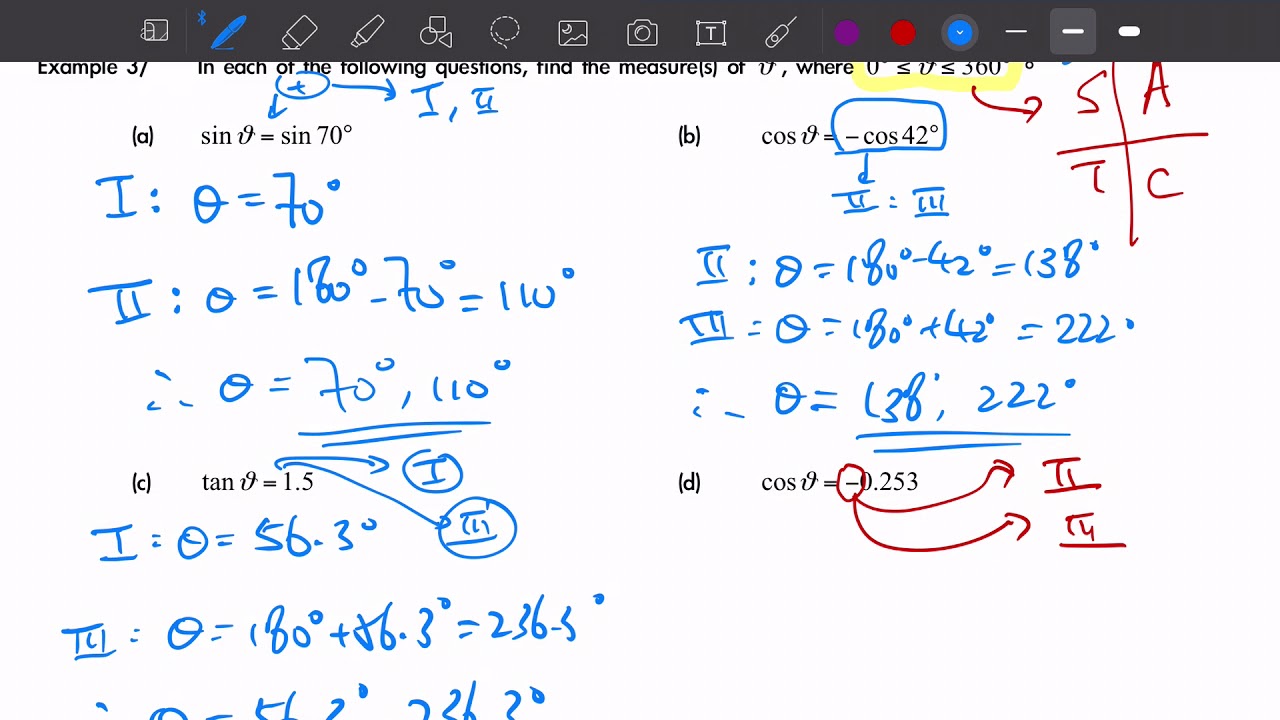 T
Example 37 In each of the following questions, find the measure(s) of ϑ, where 0° ≤ ϑ ≤ 360°
+ I, II
S A
T C
(a) sin ϑ = sin 70°
I : θ = 70°
II : θ = 180° - 70° = 110°
∴ θ = 70°, 110°
(b) cos ϑ = −cos 42°
II : III
II : θ = 180° - 42° = 138°
III = θ = 180° + 42° = 222°
∴ θ = 138°, 222°
(c) tan ϑ = 1.5
I
III
I = θ = 56.3°
III = θ = 180° + 56.3° = 236.3°
∴ θ = 56.3° 236.3°
(d) cos ϑ = −0.253
II
III